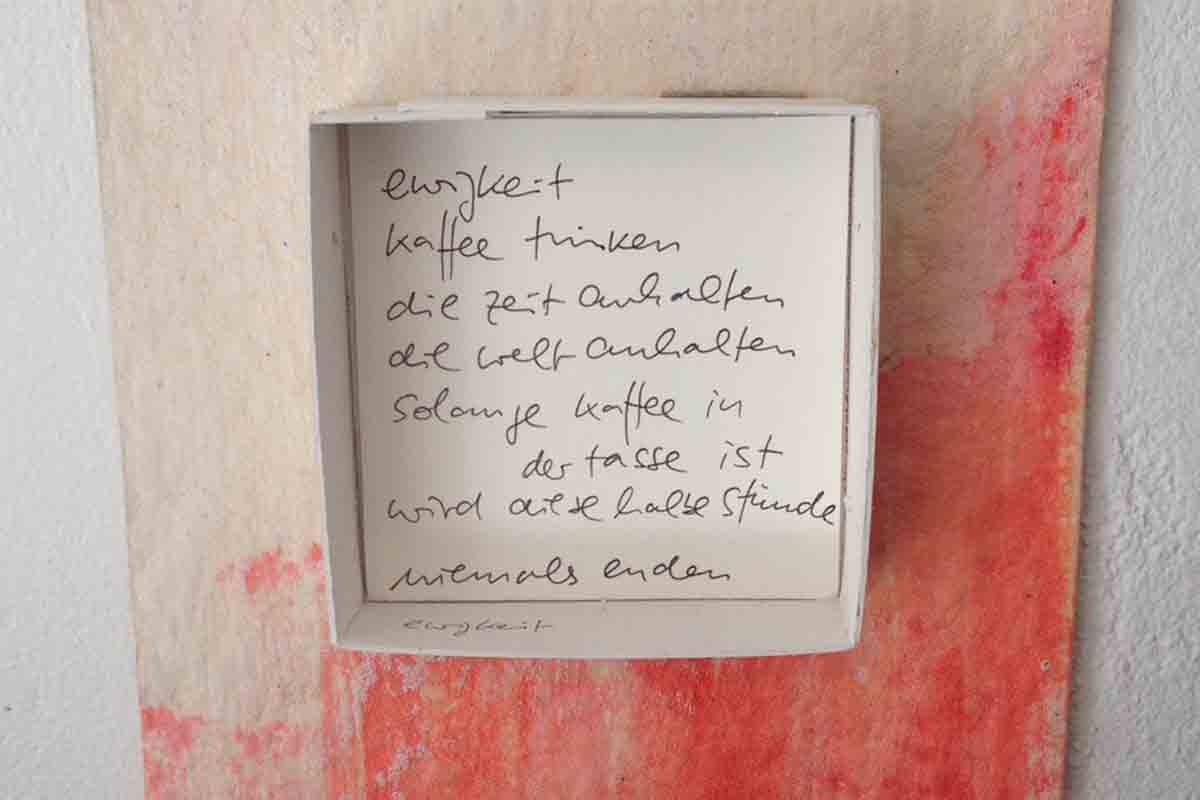 ewigkeit
kaffee trinken
die zeit anhalten
die welt anhalten
solange kaffee in
der tasse ist
wird diese halbe stunde
niemals enden
ewigkeit